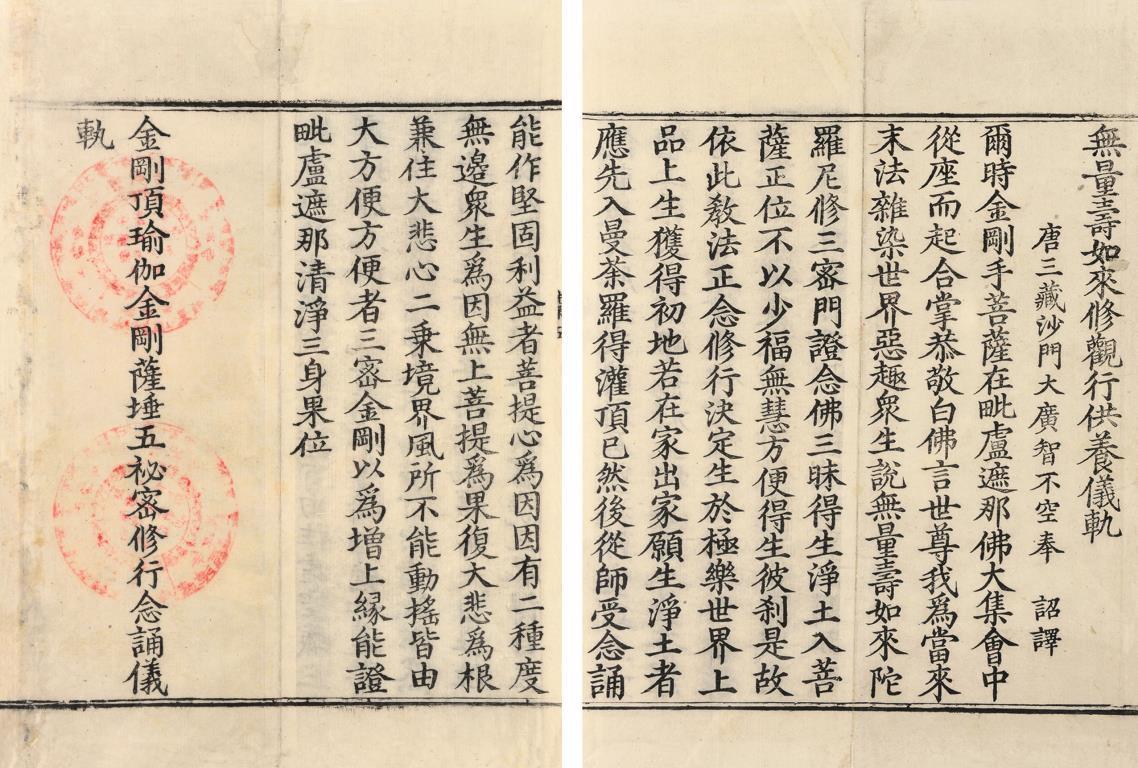 無量壽如來修觀行供養儀軌
唐三藏沙門大廣智不空奉　詔譯
爾時金剛手菩薩在毗盧遮那佛大集會中
從座而起合掌恭敬白佛言世尊我爲當來
末法雜染世界惡趣衆生說無量壽如來陀
羅尼修三密門證念佛三昧得生淨土入菩
薩正位不以少福無慧方便得生彼刹是故
依此敎法正念修行決定生於極樂世界上
品上生獲得初地若在家出家願生淨土者
應先入曼荼羅得灌頂已然後從師受念誦
能作堅固利益者菩提心爲因因有二種度
無邊衆生爲因無上菩提爲果復大悲爲根
兼住大悲心二乘境界風所不能動搖皆由
大方便方便者三密金剛以爲增上緣能證
毗盧遮那清淨三身果位
金剛頂瑜伽金剛薩埵五祕密修行念誦儀
軌